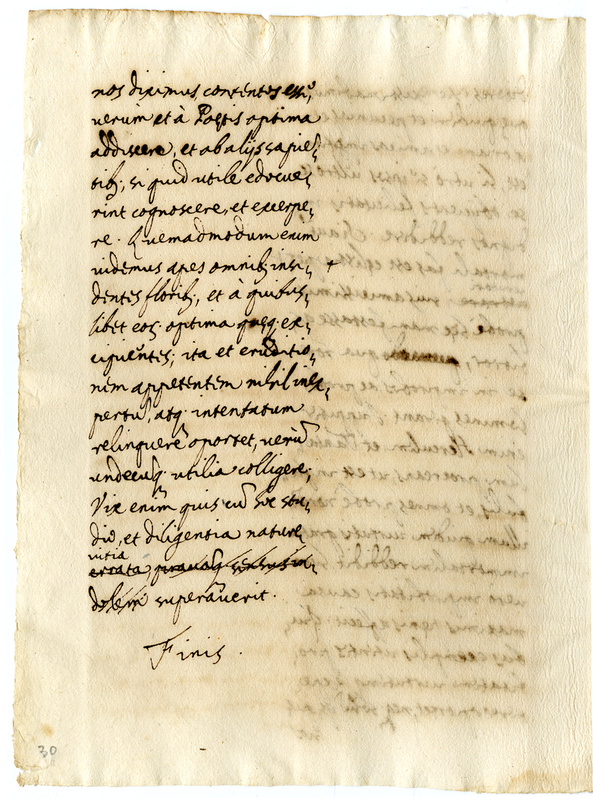 nos diximus contentos esse,
verùm et à Poetis optima
addiscere, et ab alijs sapie-
tib9, si quid utile edocue-
rint cognoscere, et excerpe-
re. Quemadmodum enim
videmus apes omnib9 insi-
dentes florib9, et à quibus-
libet eos optima quęq; ex-
cipientes; ita et eruditio-
nem appetentem nihil inex-
pertū, atq; intentatum
relinquere oportet, verū
undecūq; utilia colligere;
Vix enim quis cū hoc stu-
dio, et diligentia naturę
vitia
errata,
superaverit.
Finis.
30